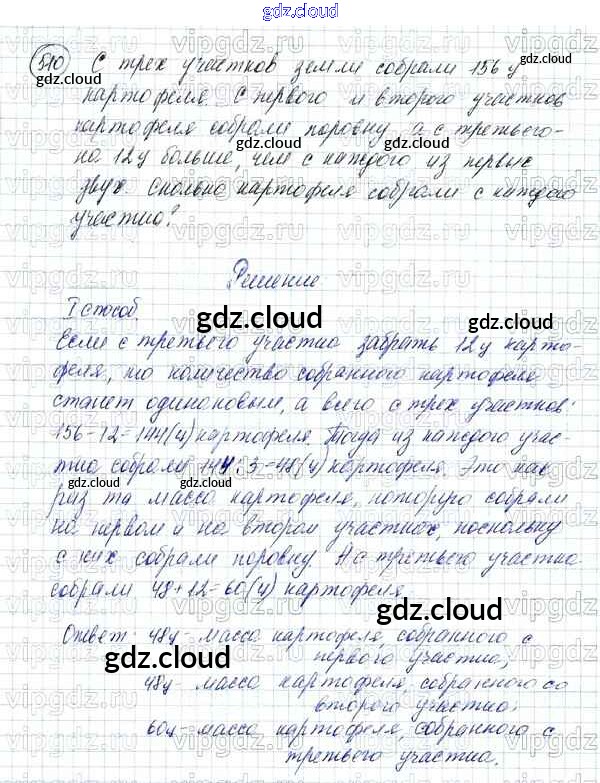 gdz.cloud
510 С трех участков земли собрали 156 ц
картофеля. С первого и второго участков
картофеля собрали поровну, а с третьего-
на 12ц больше, чем с каждого из первых
двух. Сколько картофеля собрали с каждого
участка?
Решение
I способ.
Если с третьего участка забрать 12ц карто-
феля, то количество собранного картофеля
станет одинаковым, а всего с трех участков:
156-12=144(ц) картофеля. Тогда из каждого учас-
тка собрали 144:3=48(ц) картофеля. Это как
раз та масса картофеля, которую собрали
на первом и на втором участках, поскольку
с них собрали поровну. А с третьего участка
собрали 48+12=60(ц) картофеля.
Ответ: 48ц - масса картофеля, собранного с
первого участка;
48ц - масса картофеля, собранного со
второго участка;
60ц - масса картофеля, собранного с
третьего участка.